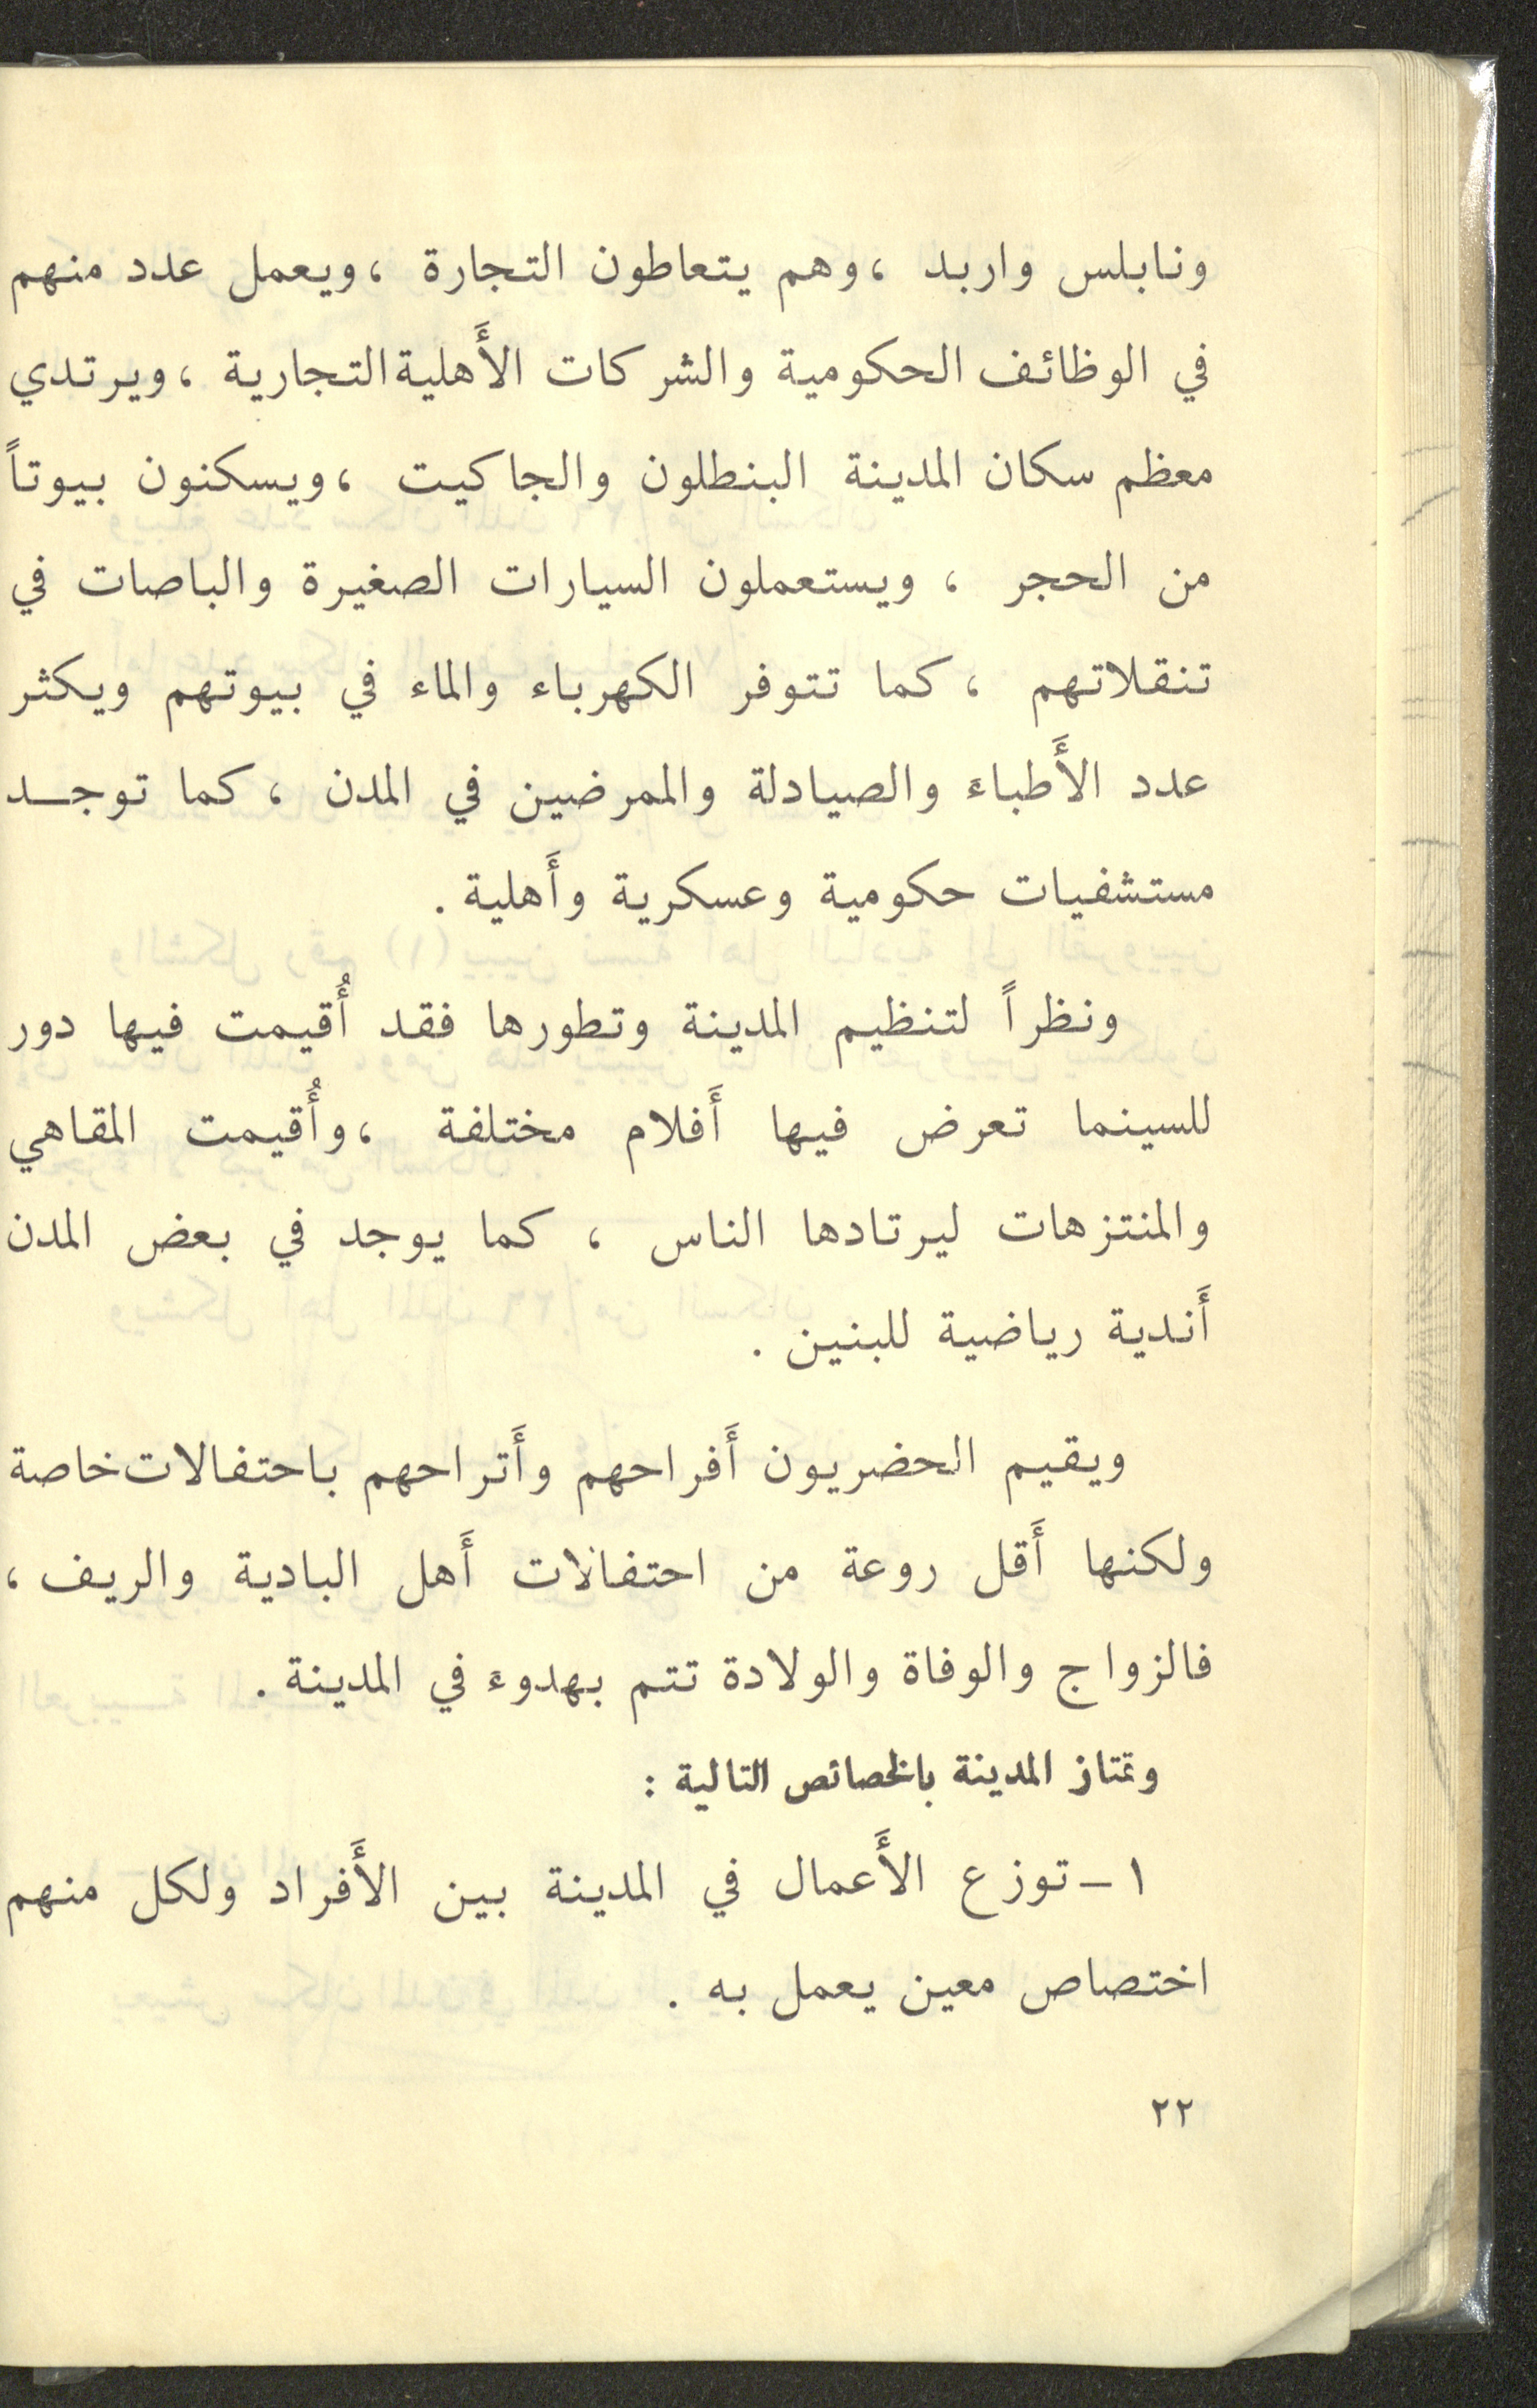 ونابلس واربد ، وهم يتعاطون التجارة ، ويعمل عدد منهم
في الوظائف الحكومية والشركات الأَهلية التجارية ، ويرتدي
معظم سكان المدينة البنطلون والجاكيت ، ويسكنون بيوتاً
من الحجر ، ويستعملون السيارات الصغيرة والباصات في
تنقلاتهم ، كما تتوفر الكهرباء والماء في بيوتهم ويكثر
عدد الأَطباء والصيادلة والممرضين في المدن ، كما توجــد
مستشفيات حكومية وعسكرية وأَهلية .
ونظراً لتنظيم المدينة وتطورها فقد أُقيمت فيها دور
للسينما تعرض فيها أَفلام مختلفة ، وأُقيمت المقاهي
والمنتزهات ليرتادها الناس ، كما يوجد في بعض المدن
أَندية رياضية للبنين .
ويقيم الحضريون أَفراحهم وأَتراحهم باحتفالات خاصة
ولكنها أَقل روعة من احتفالات أَهل البادية والريف ،
فالزواج والوفاة والولادة تتم بهدوء في المدينة .
وتمتاز المدينة بالخصائص التالية :
١ - توزع الأَعمال في المدينة بين الأَفراد ولكل منهم
اختصاص معين يعمل به .
٢٢